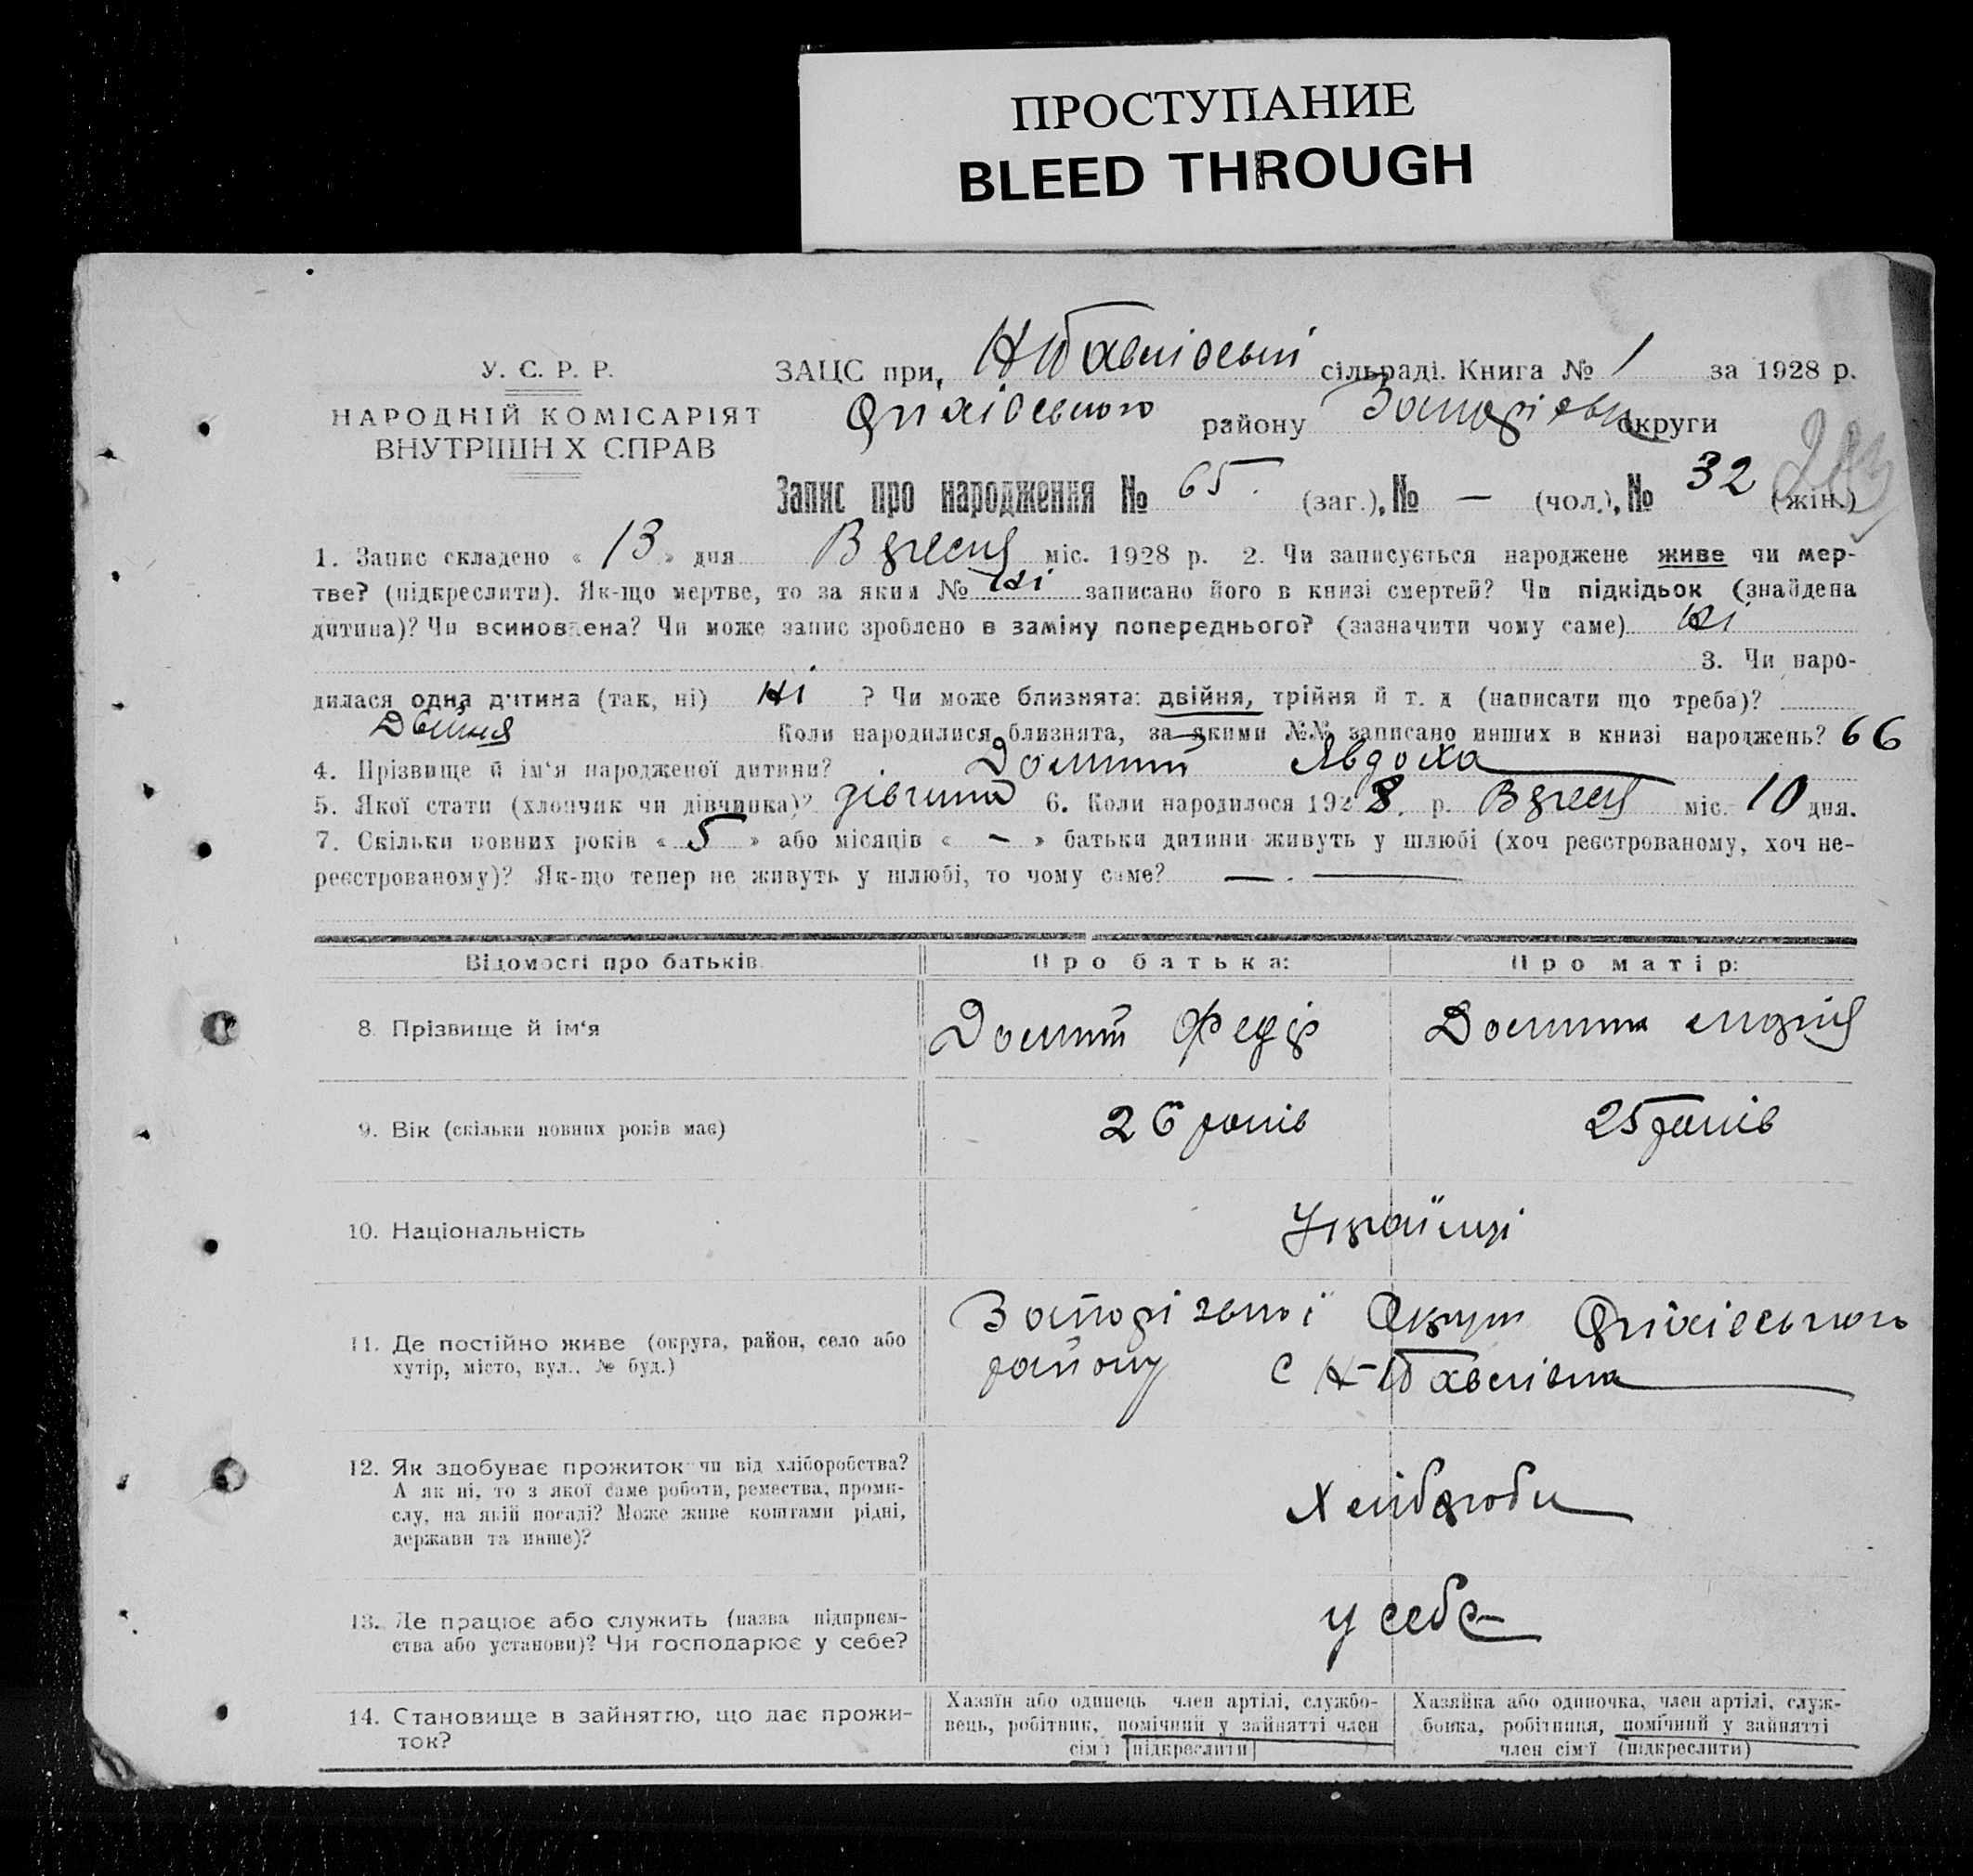 ПРОСТУПАНИЕ
BLEED THROUGH
У. С. Р. Р.
НАРОДНІЙ КОМІСАРІЯТ
ВНУТРІШН Х СПРАВ
ЗАЦС при Н Павлівські сільраді. Книга № 1 за 1928 р.
Оріхівського району округи
Запис про народження № 65. (заг.), № — (чол.), № 32 (жін.)
1. Запис складено « 13 » дня Вересня міс. 1928 р. 2. Чи записується народжене живе чи мер-
тве? (підкреслити). Як-що мертве, то за яким № ні записано його в книзі смертей? Чи підкідьок (знайдена
дитина)? Чи всиновлена? Чи може запис зроблено в заміну попереднього? (зазначити чому саме) ні
3. Чи наро-
дилася одна дитина (так, ні) ні ? Чи може близнята: двійня, трійня й т. д (написати що треба)?
Двійня Коли народилися близнята, за якими №№ записано инших в книзі народжень? 66
4. Прізвище й ім'я народженої дитини? Явдоха
5. Якої стати (хлопчик чи дівчинка)? дівчина 6. Коли народилося 1928. р. Вересня міс. 10 дня.
7. Скільки повних років « 5 » або місяців « — » батьки дитини живуть у шлюбі (хоч реєстрованому, хоч не-
реєстрованому)? Як-що тепер не живуть у шлюбі, то чому саме? —
Відомості про батьків
Про батька:
Про матір:
8. Прізвище й ім'я
Федір
9. Вік (скільки повних років має)
26 років
25 років
10. Національність
Українці
11. Де постійно живе (округа, район, село або
хутір, місто, вул., № буд.)
Запорізької Округи Оріхівського
району с Н-Павлівка
12. Як здобуває прожиток чи від хліборобства?
А як ні, то з якої саме роботи, ремества, проми-
слу, на якій посаді? Може живе коштами рідні,
держави та инше)?
Хлібороби
13. Де працює або служить (назва підприєм-
ства або установи)? Чи господарює у себе?
у себе
14. Становище в зайняттю, що дає прожи-
ток?
Хазяїн або одинець член артілі, службо-
вець, робітник, помічний у зайнятті член
сім'ї (підкреслити)
Хазяйка або одиночка, член артілі, служ-
бовка, робітниця, помічний у зайнятті
член сім'ї (підкреслити)